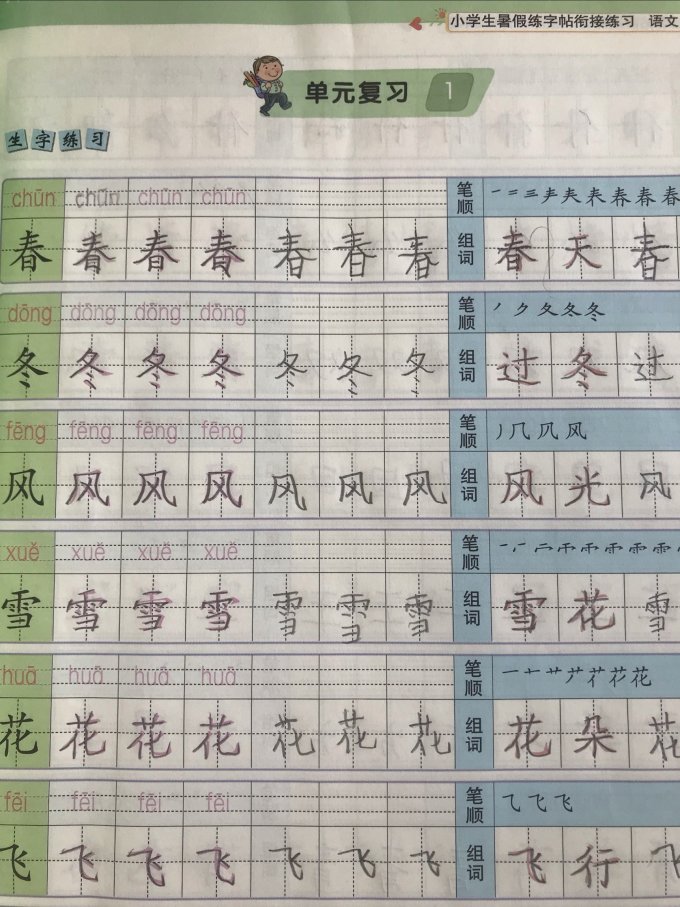 小学生暑假练字帖衔接练习 语文
单元复习 1
生字练习
chūn chūn chūn chūn 笔顺 一 二 三 𡗗 夫 表 春 春 春
春 春 春 春 春 春 春 组词 春 天 春
dōng dōng dōng dōng 笔顺 丿 ク 夂 冬 冬
冬 冬 冬 冬 冬 冬 冬 组词 过 冬 过
fēng fēng fēng fēng 笔顺 丿 几 凤 风
风 风 风 风 风 风 风 组词 风 光 风
xuě xuě xuě xuě 笔顺
雪 雪 雪 雪 雪 雪 雪 组词 雪 花 雪
huā huā huā huā 笔顺 一 十 艹 艹 花 花 花
花 花 花 花 花 花 花 组词 花 朵 花
fēi fēi fēi fēi 笔顺 乁 飞 飞
飞 飞 飞 飞 飞 飞 飞 组词 飞 行 飞